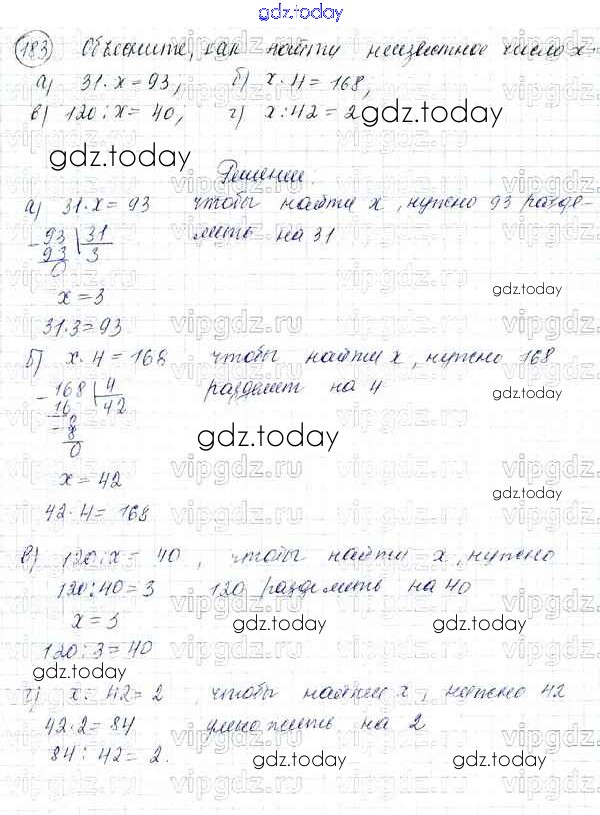 gdz.today
183 Объясните, как найти неизвестное число x.
а) 31·x = 93, б) x·4 = 168,
в) 120:x = 40, г) x:42 = 2
gdz.today
gdz.today
Решение:
а) 31·x = 93 чтобы найти x, нужно 93 разде-
лить на 31
93 | 31
93 3
0
x = 3
gdz.today
31·3 = 93
б) x·4 = 168 чтобы найти x, нужно 168
разделит на 4
168 | 4
16 42
8
8
0
gdz.today
gdz.today
x = 42
gdz.today
42·4 = 168
в) 120:x = 40, чтобы найти x, нужно
120:40 = 3 120 разделить на 40
x = 3
gdz.today gdz.today
120:3 = 40
gdz.today
г) x:42 = 2, чтобы найти x, нужно 42
42·2 = 84 умножить на 2
84:42 = 2.
gdz.today gdz.today